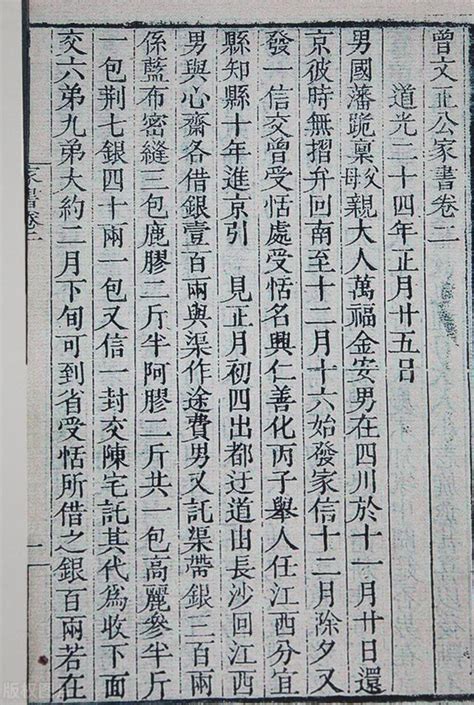 曾文正公家書卷二
道光二十四年正月廿五日
男國藩跪稟父母親大人萬福金安男在四川於十一月廿日還
京彼時無摺弁回南至十二月十六始發家信十二月除夕又
發一信交曾受恬處受恬名興仁善化丙子舉人任江西分宜
縣知縣十年進京引　見正月初四出都迂道出長沙回江西
男與心齋各借銀壹百兩與渠作途費男又託渠帶銀三百兩
係藍布密縫三包鹿膠二斤半阿膠二斤共一包高麗參半斤
一包荆七銀四十兩一包又信一封交陳宅託其代為收下面
交六弟九弟大約二月下旬可到省受恬所借之銀百兩若在
家書卷二
一